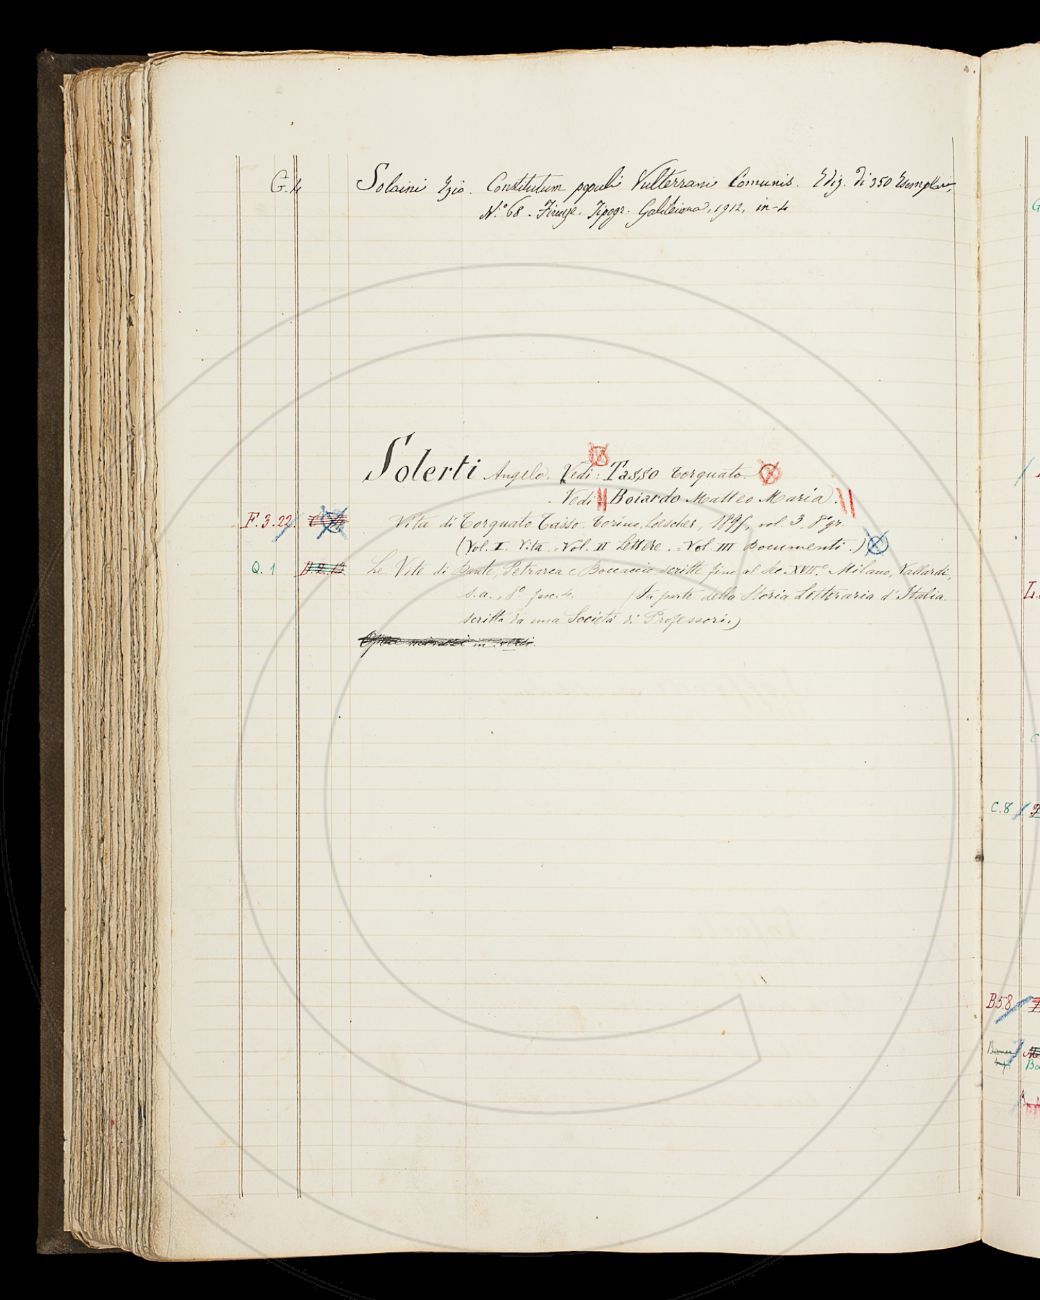 G.4 Solaini Ezio. Constitutum populi Vulterrani Comunis. Ediz. di 350 Esemplari,
N.º 68. Firenze. Tipogr. Galileiana, 1912, in-4
Solerti Angelo. Vedi: Tasso Torquato.
Vedi Boiardo Matteo Maria
F.3.22 Vita di Torquato Tasso. Torino, Loescher, 1895, vol. 3, 8º gr.
(Vol. I Vita. Vol. II Lettere. Vol. III Documenti.)
Q.1 Le Vite di Dante, Petrarca e Boccaccio scritte fino al Sec. XVIIº. Milano, Vallardi,
s.a., 8º fasc. 4. (Fa parte della Storia Letteraria d'Italia
scritta da una Società di Professori.)
C.8
B58